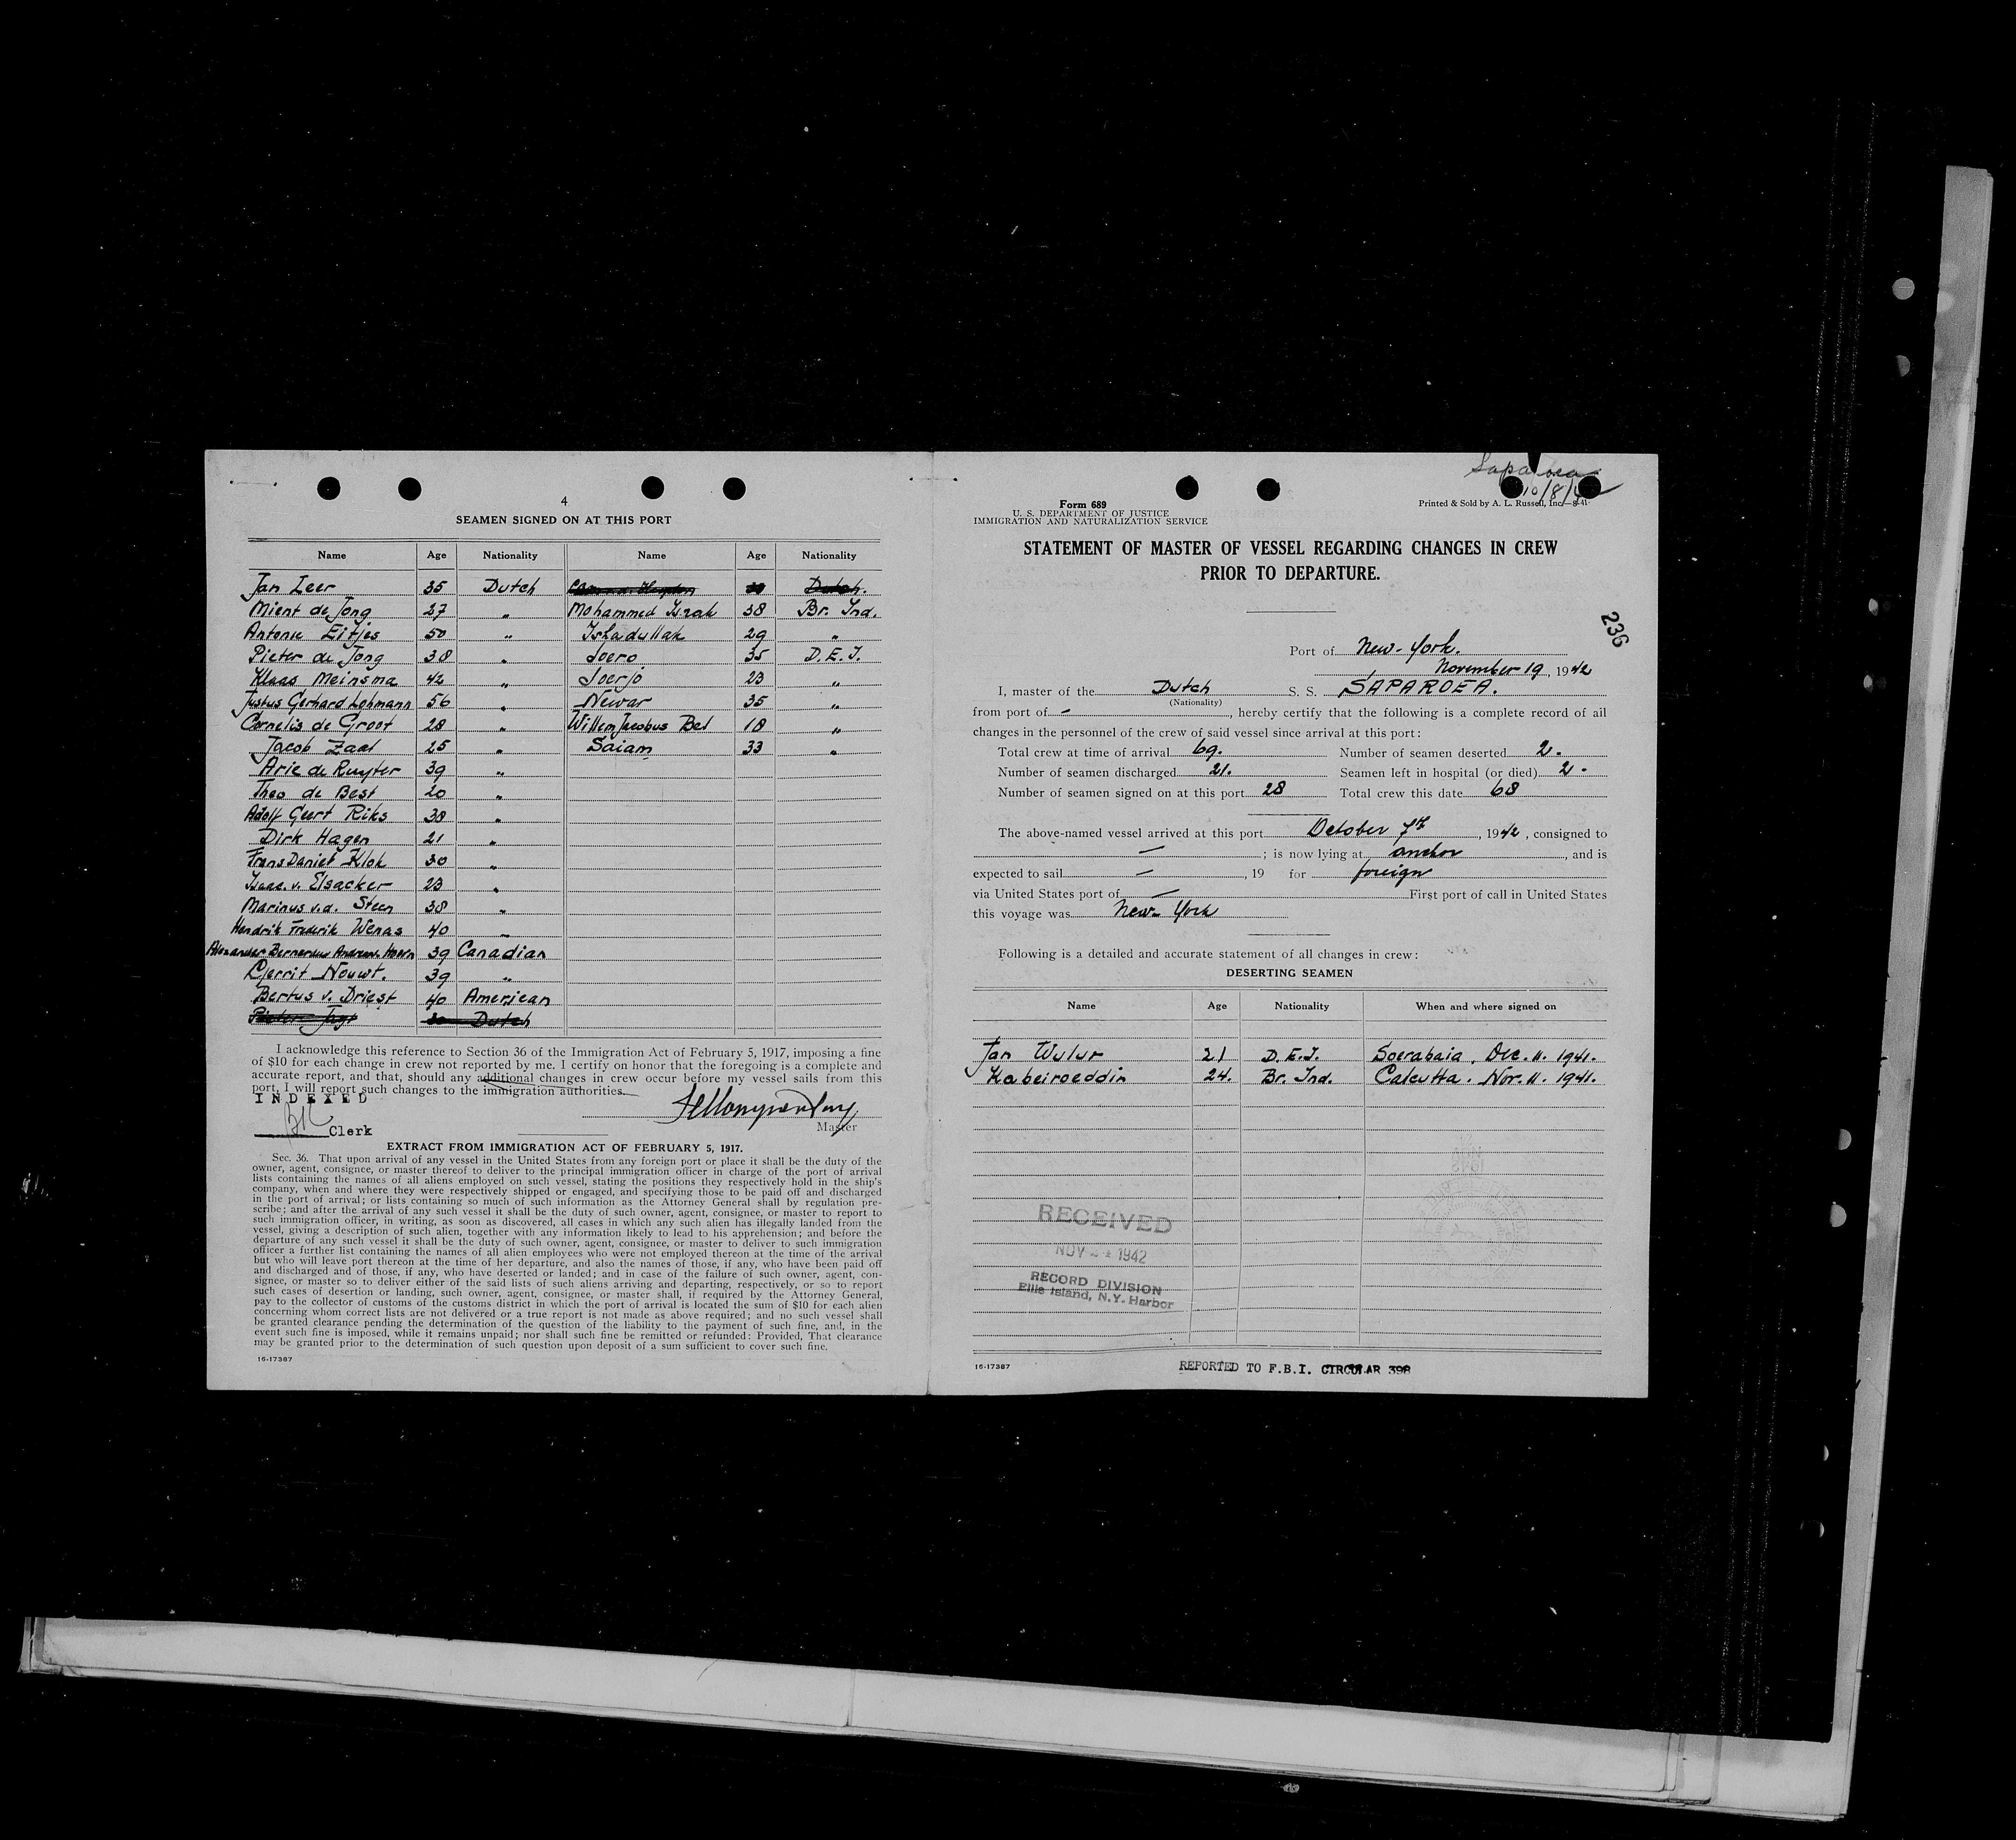 4
SEAMEN SIGNED ON AT THIS PORT
Name Age Nationality Name Age Nationality
Jan Leer 35 Dutch Dutch.
Mient de Jong 27 „ Mohammed Israk 38 Br. Ind.
Antonie Eitjes 50 „ Ishadullah 29 „
Pieter de Jong 38 „ Soero 35 D.E.I.
Klaas Meinsma 42 „ Soerjo 23 „
Justus Gerhard Lohmann 56 „ Newar 35 „
Cornelis de Groot 28 „ Willem Jacobus Bel 18 „
Jacob Zaal 25 „ Saiam 33 „
Arie de Ruyter 39 „
Theo de Best 20 „
Adolf Geert Riks 38 „
Dirk Hagen 21 „
Frans Daniel Klok 30 „
Isaac v. Elsacker 23 „
Marinus v.d. Steen 38 „
Hendrik Frederik Wenas 40 „
Alexander Bernardus Andreas 39 Canadian
Gerrit Nouwt. 39 „
Bertus v. Driest 40 American
Pieter Dutch
I acknowledge this reference to Section 36 of the Immigration Act of February 5, 1917, imposing a fine
of $10 for each change in crew not reported by me. I certify on honor that the foregoing is a complete and
accurate report, and that, should any additional changes in crew occur before my vessel sails from this
port, I will report such changes to the immigration authorities.
INDEXED
Clerk
Master
EXTRACT FROM IMMIGRATION ACT OF FEBRUARY 5, 1917.
Sec. 36. That upon arrival of any vessel in the United States from any foreign port or place it shall be the duty of the
owner, agent, consignee, or master thereof to deliver to the principal immigration officer in charge of the port of arrival
lists containing the names of all aliens employed on such vessel, stating the positions they respectively hold in the ship's
company, when and where they were respectively shipped or engaged, and specifying those to be paid off and discharged
in the port of arrival; or lists containing so much of such information as the Attorney General shall by regulation pre-
scribe; and after the arrival of any such vessel it shall be the duty of such owner, agent, consignee, or master to report to
such immigration officer, in writing, as soon as discovered, all cases in which any such alien has illegally landed from the
vessel, giving a description of such alien, together with any information likely to lead to his apprehension; and before the
departure of any such vessel it shall be the duty of such owner, agent, consignee, or master to deliver to such immigration
officer a further list containing the names of all alien employees who were not employed thereon at the time of the arrival
but who will leave port thereon at the time of her departure, and also the names of those, if any, who have been paid off
and discharged and of those, if any, who have deserted or landed; and in case of the failure of such owner, agent, con-
signee, or master so to deliver either of the said lists of such aliens arriving and departing, respectively, or so to report
such cases of desertion or landing, such owner, agent, consignee, or master shall, if required by the Attorney General,
pay to the collector of customs of the customs district in which the port of arrival is located the sum of $10 for each alien
concerning whom correct lists are not delivered or a true report is not made as above required; and no such vessel shall
be granted clearance pending the determination of the question of the liability to the payment of such fine, and, in the
event such fine is imposed, while it remains unpaid; nor shall such fine be remitted or refunded: Provided, That clearance
may be granted prior to the determination of such question upon deposit of a sum sufficient to cover such fine.
16-17387
Saparoea
10/8/42
Form 689
U. S. DEPARTMENT OF JUSTICE
IMMIGRATION AND NATURALIZATION SERVICE
Printed & Sold by A. L. Russell, Inc.—8-41-
STATEMENT OF MASTER OF VESSEL REGARDING CHANGES IN CREW
PRIOR TO DEPARTURE.
236
Port of New-York.
November 19, 1942
I, master of the Dutch S. S. SAPAROEA.
(Nationality)
from port of - , hereby certify that the following is a complete record of all
changes in the personnel of the crew of said vessel since arrival at this port:
Total crew at time of arrival 69. Number of seamen deserted 2.
Number of seamen discharged 21. Seamen left in hospital (or died) 2.
Number of seamen signed on at this port 28 Total crew this date 68
The above-named vessel arrived at this port October 7th, 1942, consigned to
— ; is now lying at anchor, and is
expected to sail — , 19 for foreign
via United States port of — First port of call in United States
this voyage was New-York
Following is a detailed and accurate statement of all changes in crew:
DESERTING SEAMEN
Name Age Nationality When and where signed on
Jan Wulur 21 D.E.I. Soerabaia. Dec. 11. 1941.
Kabeiroeddin 24. Br. Ind. Calcutta. Nov. 11. 1941.
RECEIVED
NOV 1942
RECORD DIVISION
Ellis Island, N.Y. Harbor
16-17387
REPORTED TO F.B.I. CIRCULAR 398